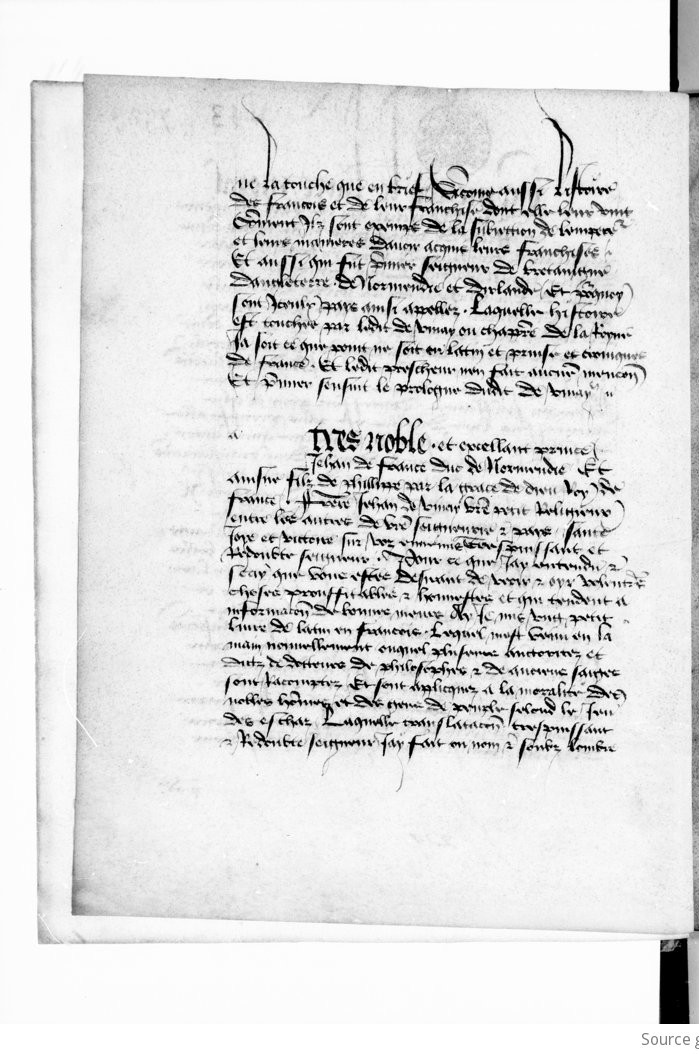 ne la touche que en brief Et come aussi listoire
des francois et de leur franchise dont elle leur vint
Coment Ilz sont exemps de la subiection de lempereur
et leurs manieres dauoir acquis leurs franchises
Et aussi qui fut p̃mier seigneur de bretaingne
dangleterre de Normendie et dirlande Et p̃quoy
sont Iceulx pays ainsi appellez . Laquelle histoire
est touchee par ledit de vinay ou chappr̃e de la Royne
Ja soit ce que point ne soit en latin et prinse es croniques
de france . Et ledit prescheur nen fait aucune mencoñ
Et p̃mier sensuit le prologue dudit de vinay
a
tres noble . et excellant prince
Jehan de france duc de Normendie Et
ainsne filz de phillippe par la grace de dieu Roy de
france . frere Jehan de vinay vr̃e petit Religieux
entre les autres de vr̃e seigneurie ⁊ pays sante
Joye et victoire sur voz ennemis trespuissant et
Redoubte seigneur . Pour ce que Jay entendu ⁊
scay que vous estes desirant de veoir ⁊ oyr
choses prouffitables ⁊ honnestes et qui tendent a
informacoñ de bonnes meurs Ay Je mis vng petit
liure de latin en francois . Lequel mest venu en la
main nouuellement ouquel plusieurs auctoritez et
dictz de docteurs de philosophes ⁊ de anciens saiges
sont Racomptez Et sont apliquez a la moralite des
nobles hõmes et des gens de peuple selond le Jeu
des eschaz . Laquelle translatacoñ trespuissant
⁊ Redoubte seigneur Jay fait ou nom ⁊ soubz lombre
Source